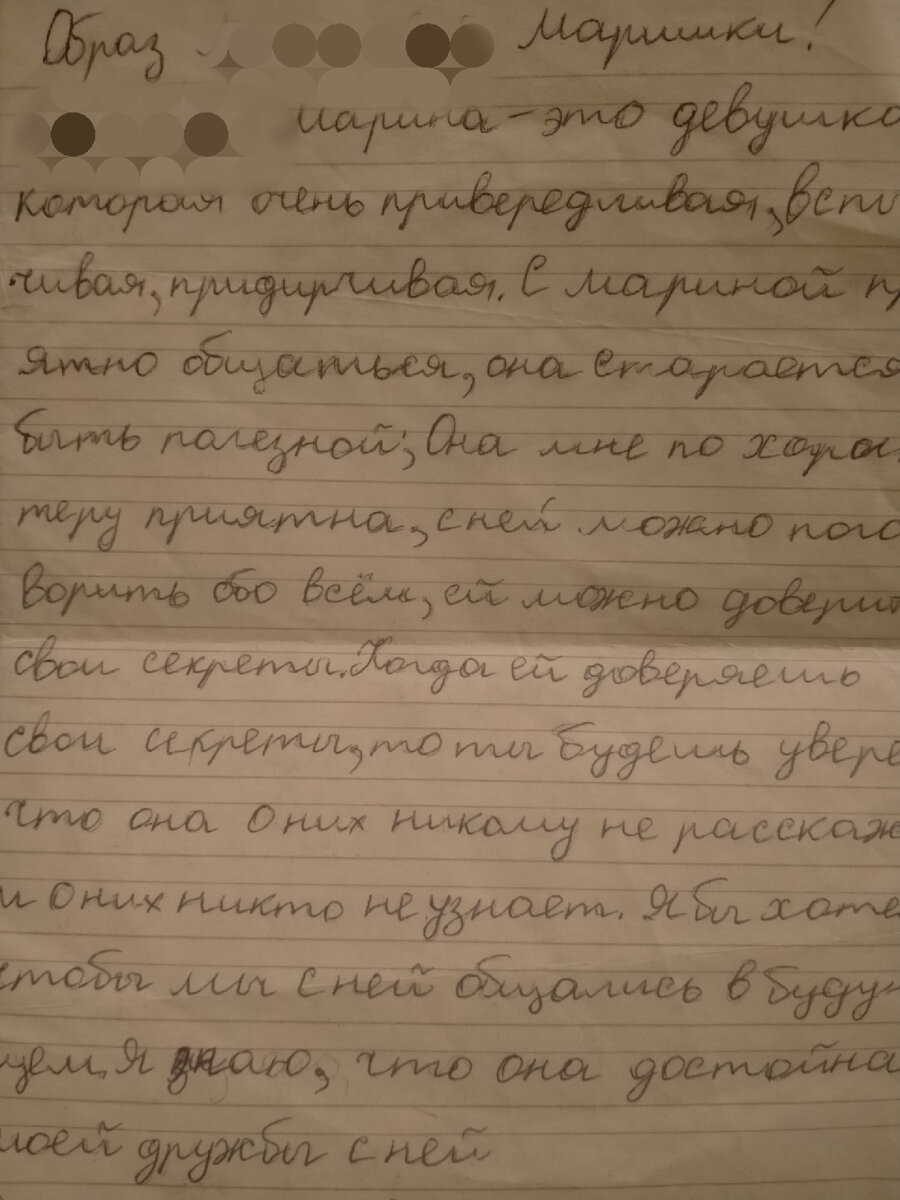 Образ Маришки!
Марина - это девушка
которая очень привередливая, вспы
чивая, придирчивая. С мариной пр
ятно общаться, она старается
быть полезной; Она мне по харак
теру приятна, с ней можно пого
ворить обо всём, ей можно доверит
свои секреты. Когда ей доверяешь
свои секреты, то ты будешь увере
что она о них никому не расскаж
и о них никто не узнает. Я бы хоте
чтобы мы с ней общались в буду
щем. Я знаю, что она достойна
моей дружбы с ней